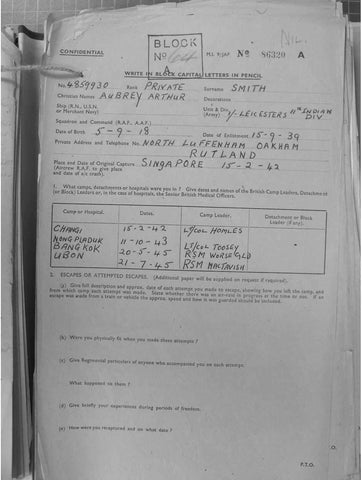 CONFIDENTIAL
BLOCK
No 64
A
NIL.
M.I. 9/JAP. No 86320 A
WRITE IN BLOCK CAPITAL LETTERS IN PENCIL
No. 4859930 Rank PRIVATE Surname SMITH
Christian Names AUBREY ARTHUR Decorations
Ship (R.N., U.S.N. or Merchant Navy). Unit & Div. (Army) 1/-LEICESTERS 11TH INDIAN DIV
Squadron and Command (R.A.F., A.A.F.)
Date of Birth 5-9-18 Date of Enlistment 15-9-39
Private Address and Telephone No. NORTH LUFFENHAM OAKHAM
RUTLAND
Place and Date of Original Capture SINGAPORE 15-2-42
(Aircrew R.A.F. to give place and date of air crash).
1. What camps, detachments or hospitals were you in? Give dates and names of the British Camp Leaders, Detachment (or Block) Leaders or, in the case of hospitals, the Senior British Medical Officers.
Camp or Hospital. Dates. Camp Leader. Detachment or Block Leader (if any).
CHANGI 15-2-42 LT/COL HOMLES
NONG PLADUK 11-10-43
BANGKOK 20-5-45 LT/COL TOOSEY
UBON RSM
21-7-45 RSM MACTAVISH
2. ESCAPES OR ATTEMPTED ESCAPES. (Additional paper will be supplied on request if required).
(a) Give full description and approx. date of each attempt you made to escape, showing how you left the camp, and from which camp each attempt was made. State whether there was an air-raid in progress at the time or not. If an escape was made from a train or vehicle the approx. speed and how it was guarded should be included.
(b) Were you physically fit when you made these attempts?
(c) Give Regimental particulars of anyone who accompanied you on each attempt.
What happened to them?
(d) Give briefly your experiences during periods of freedom.
(e) How were you recaptured and on what date?
P.T.O.
O.